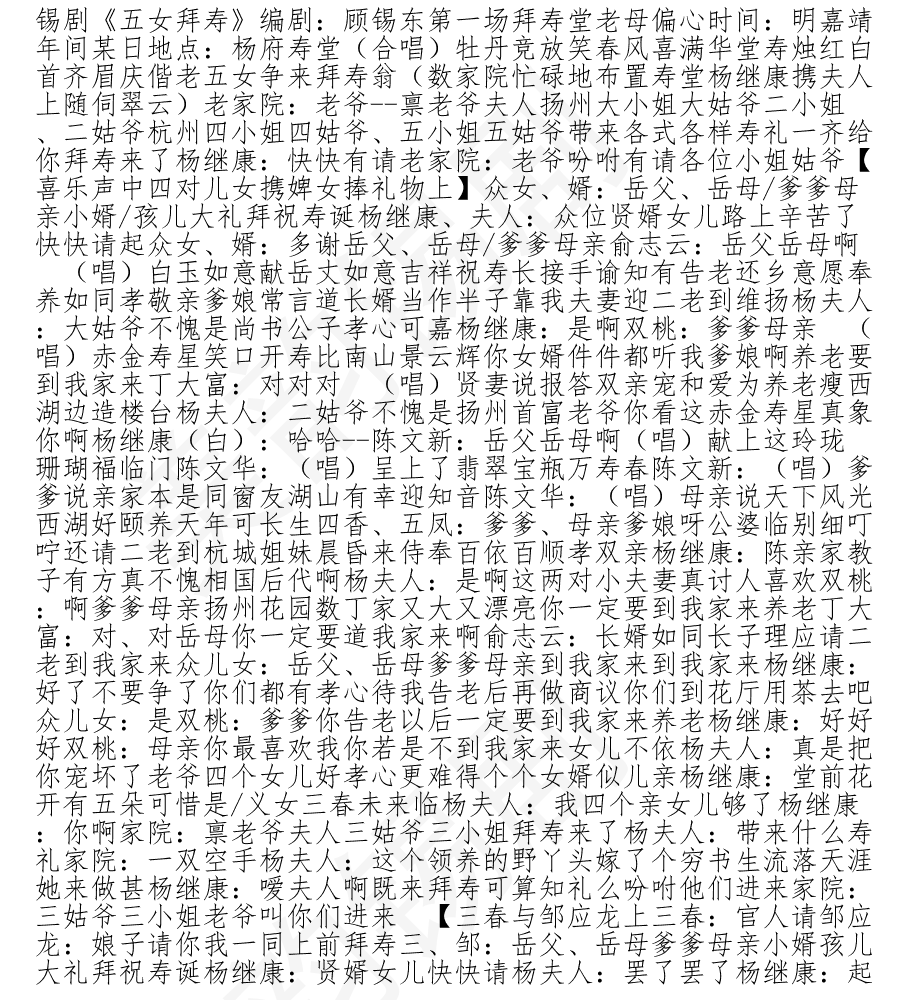 锡剧《五女拜寿》编剧：顾锡东第一场拜寿堂老母偏心时间：明嘉靖
年间某日地点：杨府寿堂（合唱）牡丹竞放笑春风喜满华堂寿烛红白
首齐眉庆偕老五女争来拜寿翁（数家院忙碌地布置寿堂杨继康携夫人
上随伺翠云）老家院：老爷--禀老爷夫人扬州大小姐大姑爷二小姐
、二姑爷杭州四小姐四姑爷、五小姐五姑爷带来各式各样寿礼一齐给
你拜寿来了杨继康：快快有请老家院：老爷吩咐有请各位小姐姑爷【
喜乐声中四对儿女携婢女捧礼物上】众女、婿：岳父、岳母/爹爹母
亲小婿/孩儿大礼拜祝寿诞杨继康、夫人：众位贤婿女儿路上辛苦了
快快请起众女、婿：多谢岳父、岳母/爹爹母亲俞志云：岳父岳母啊
（唱）白玉如意献岳丈如意吉祥祝寿长接手谕知有告老还乡意愿奉
养如同孝敬亲爹娘常言道长婿当作半子靠我夫妻迎二老到维扬杨夫人
：大姑爷不愧是尚书公子孝心可嘉杨继康：是啊双桃：爹爹母亲（
唱）赤金寿星笑口开寿比南山景云辉你女婿件件都听我爹娘啊养老要
到我家来丁大富：对对对（唱）贤妻说报答双亲宠和爱为养老瘦西
湖边造楼台杨夫人：二姑爷不愧是扬州首富老爷你看这赤金寿星真象
你啊杨继康（白）：哈哈--陈文新：岳父岳母啊（唱）献上这玲珑
珊瑚福临门陈文华：（唱）呈上了翡翠宝瓶万寿春陈文新：（唱）爹
爹说亲家本是同窗友湖山有幸迎知音陈文华：（唱）母亲说天下风光
西湖好颐养天年可长生四香、五凤：爹爹、母亲爹娘呀公婆临别细叮
咛还请二老到杭城姐妹晨昏来侍奉百依百顺孝双亲杨继康：陈亲家教
子有方真不愧相国后代啊杨夫人：是啊这两对小夫妻真讨人喜欢双桃
：啊爹爹母亲扬州花园数丁家又大又漂亮你一定要到我家来养老丁大
富：对、对岳母你一定要道我家来啊俞志云：长婿如同长子理应请二
老到我家来众儿女：岳父、岳母爹爹母亲到我家来到我家来杨继康：
好了不要争了你们都有孝心待我告老后再做商议你们到花厅用茶去吧
众儿女：是双桃：爹爹你告老以后一定要到我家来养老杨继康：好好
好双桃：母亲你最喜欢我你若是不到我家来女儿不依杨夫人：真是把
你宠坏了老爷四个女儿好孝心更难得个个女婿似儿亲杨继康：堂前花
开有五朵可惜是/义女三春未来临杨夫人：我四个亲女儿够了杨继康
：你啊家院：禀老爷夫人三姑爷三小姐拜寿来了杨夫人：带来什么寿
礼家院：一双空手杨夫人：这个领养的野丫头嫁了个穷书生流落天涯
她来做甚杨继康：嗳夫人啊既来拜寿可算知礼么吩咐他们进来家院：
三姑爷三小姐老爷叫你们进来 【三春与邹应龙上三春：官人请邹应
龙：娘子请你我一同上前拜寿三、邹：岳父、岳母爹爹母亲小婿孩儿
大礼拜祝寿诞杨继康：贤婿女儿快快请杨夫人：罢了罢了杨继康：起